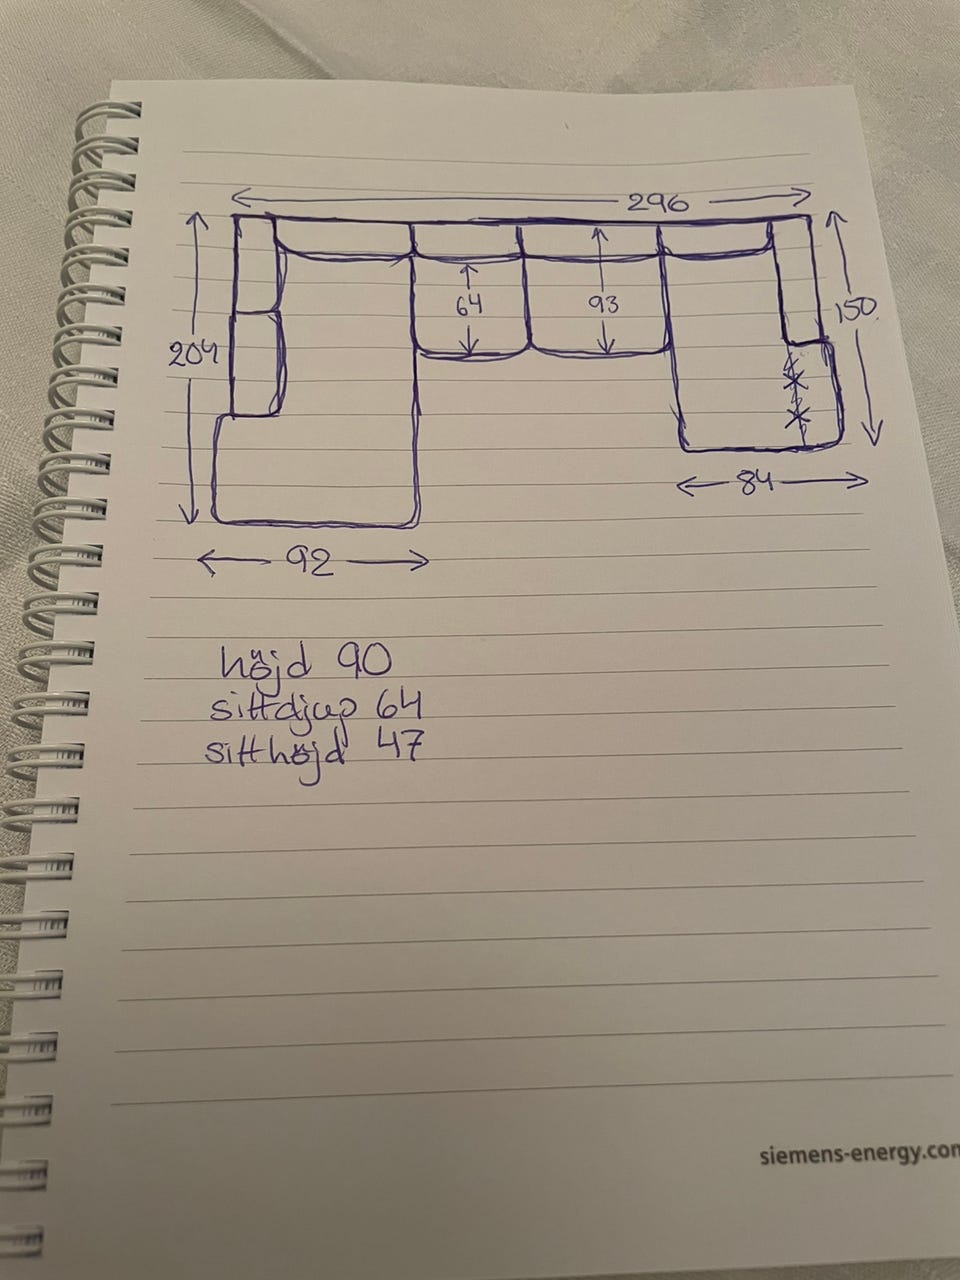 296
64
93
150
204
84
92
höjd 90
sittdjup 64
sitthöjd 47
siemens-energy.com